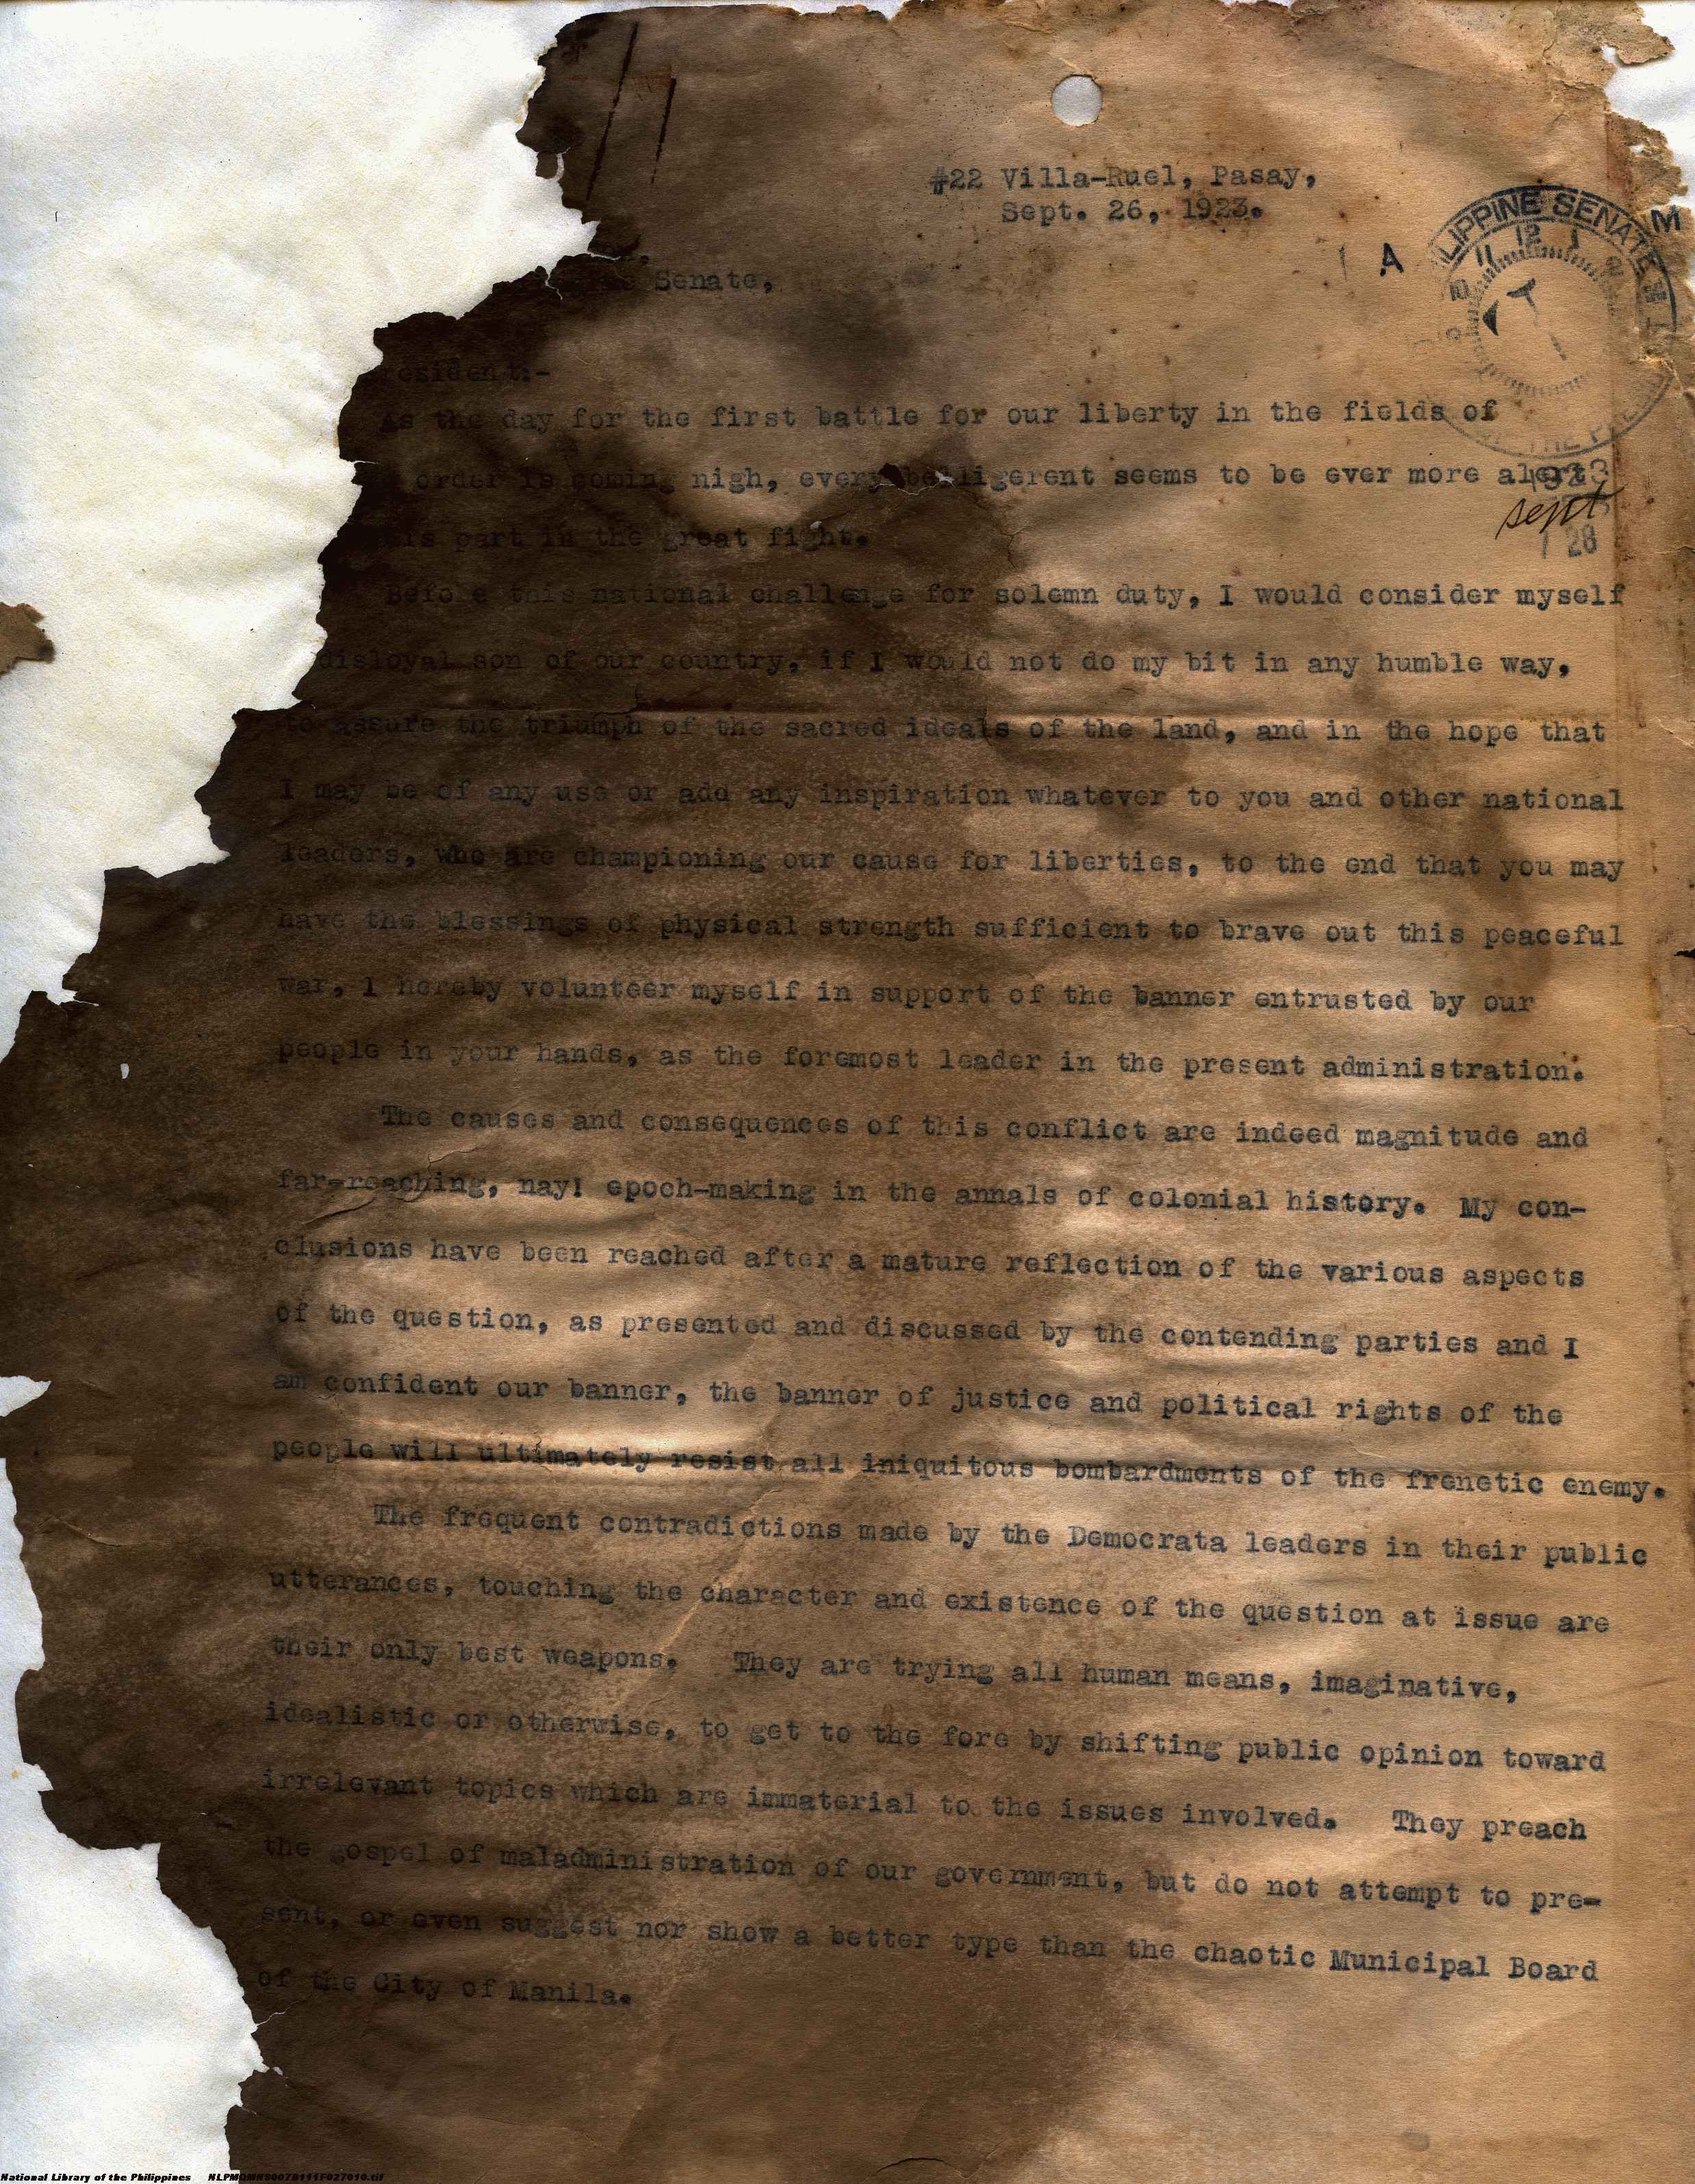 #22 Villa-Ruel, Pasay,
Sept. 26, 1923.
Senate,
esident:-
PHILIPPINE SENATE
A M
As the day for the first battle for our liberty in the fields of
order is coming nigh, every belligerent seems to be ever more alert
1923
his part in the great fight.
sept
28
Before this national challenge for solemn duty, I would consider myself
disloyal son of our country, if I would not do my bit in any humble way,
to assure the triumph of the sacred ideals of the land, and in the hope that
I may be of any use or add any inspiration whatever to you and other national
leaders, who are championing our cause for liberties, to the end that you may
have the blessings of physical strength sufficient to brave out this peaceful
war, I hereby volunteer myself in support of the banner entrusted by our
people in your hands, as the foremost leader in the present administration.
The causes and consequences of this conflict are indeed magnitude and
far-reaching, nay! epoch-making in the annals of colonial history. My con-
clusions have been reached after a mature reflection of the various aspects
of the question, as presented and discussed by the contending parties and I
am confident our banner, the banner of justice and political rights of the
people will ultimately resist all iniquitous bombardments of the frenetic enemy.
The frequent contradictions made by the Democrata leaders in their public
utterances, touching the character and existence of the question at issue are
their only best weapons. They are trying all human means, imaginative,
idealistic or otherwise, to get to the fore by shifting public opinion toward
irrelevant topics which are immaterial to the issues involved. They preach
the gospel of maladministration of our government, but do not attempt to pre-
sent, or even suggest nor show a better type than the chaotic Municipal Board
of the City of Manila.
National Library of the Philippines NLPMQMNS007B111F027010.tif